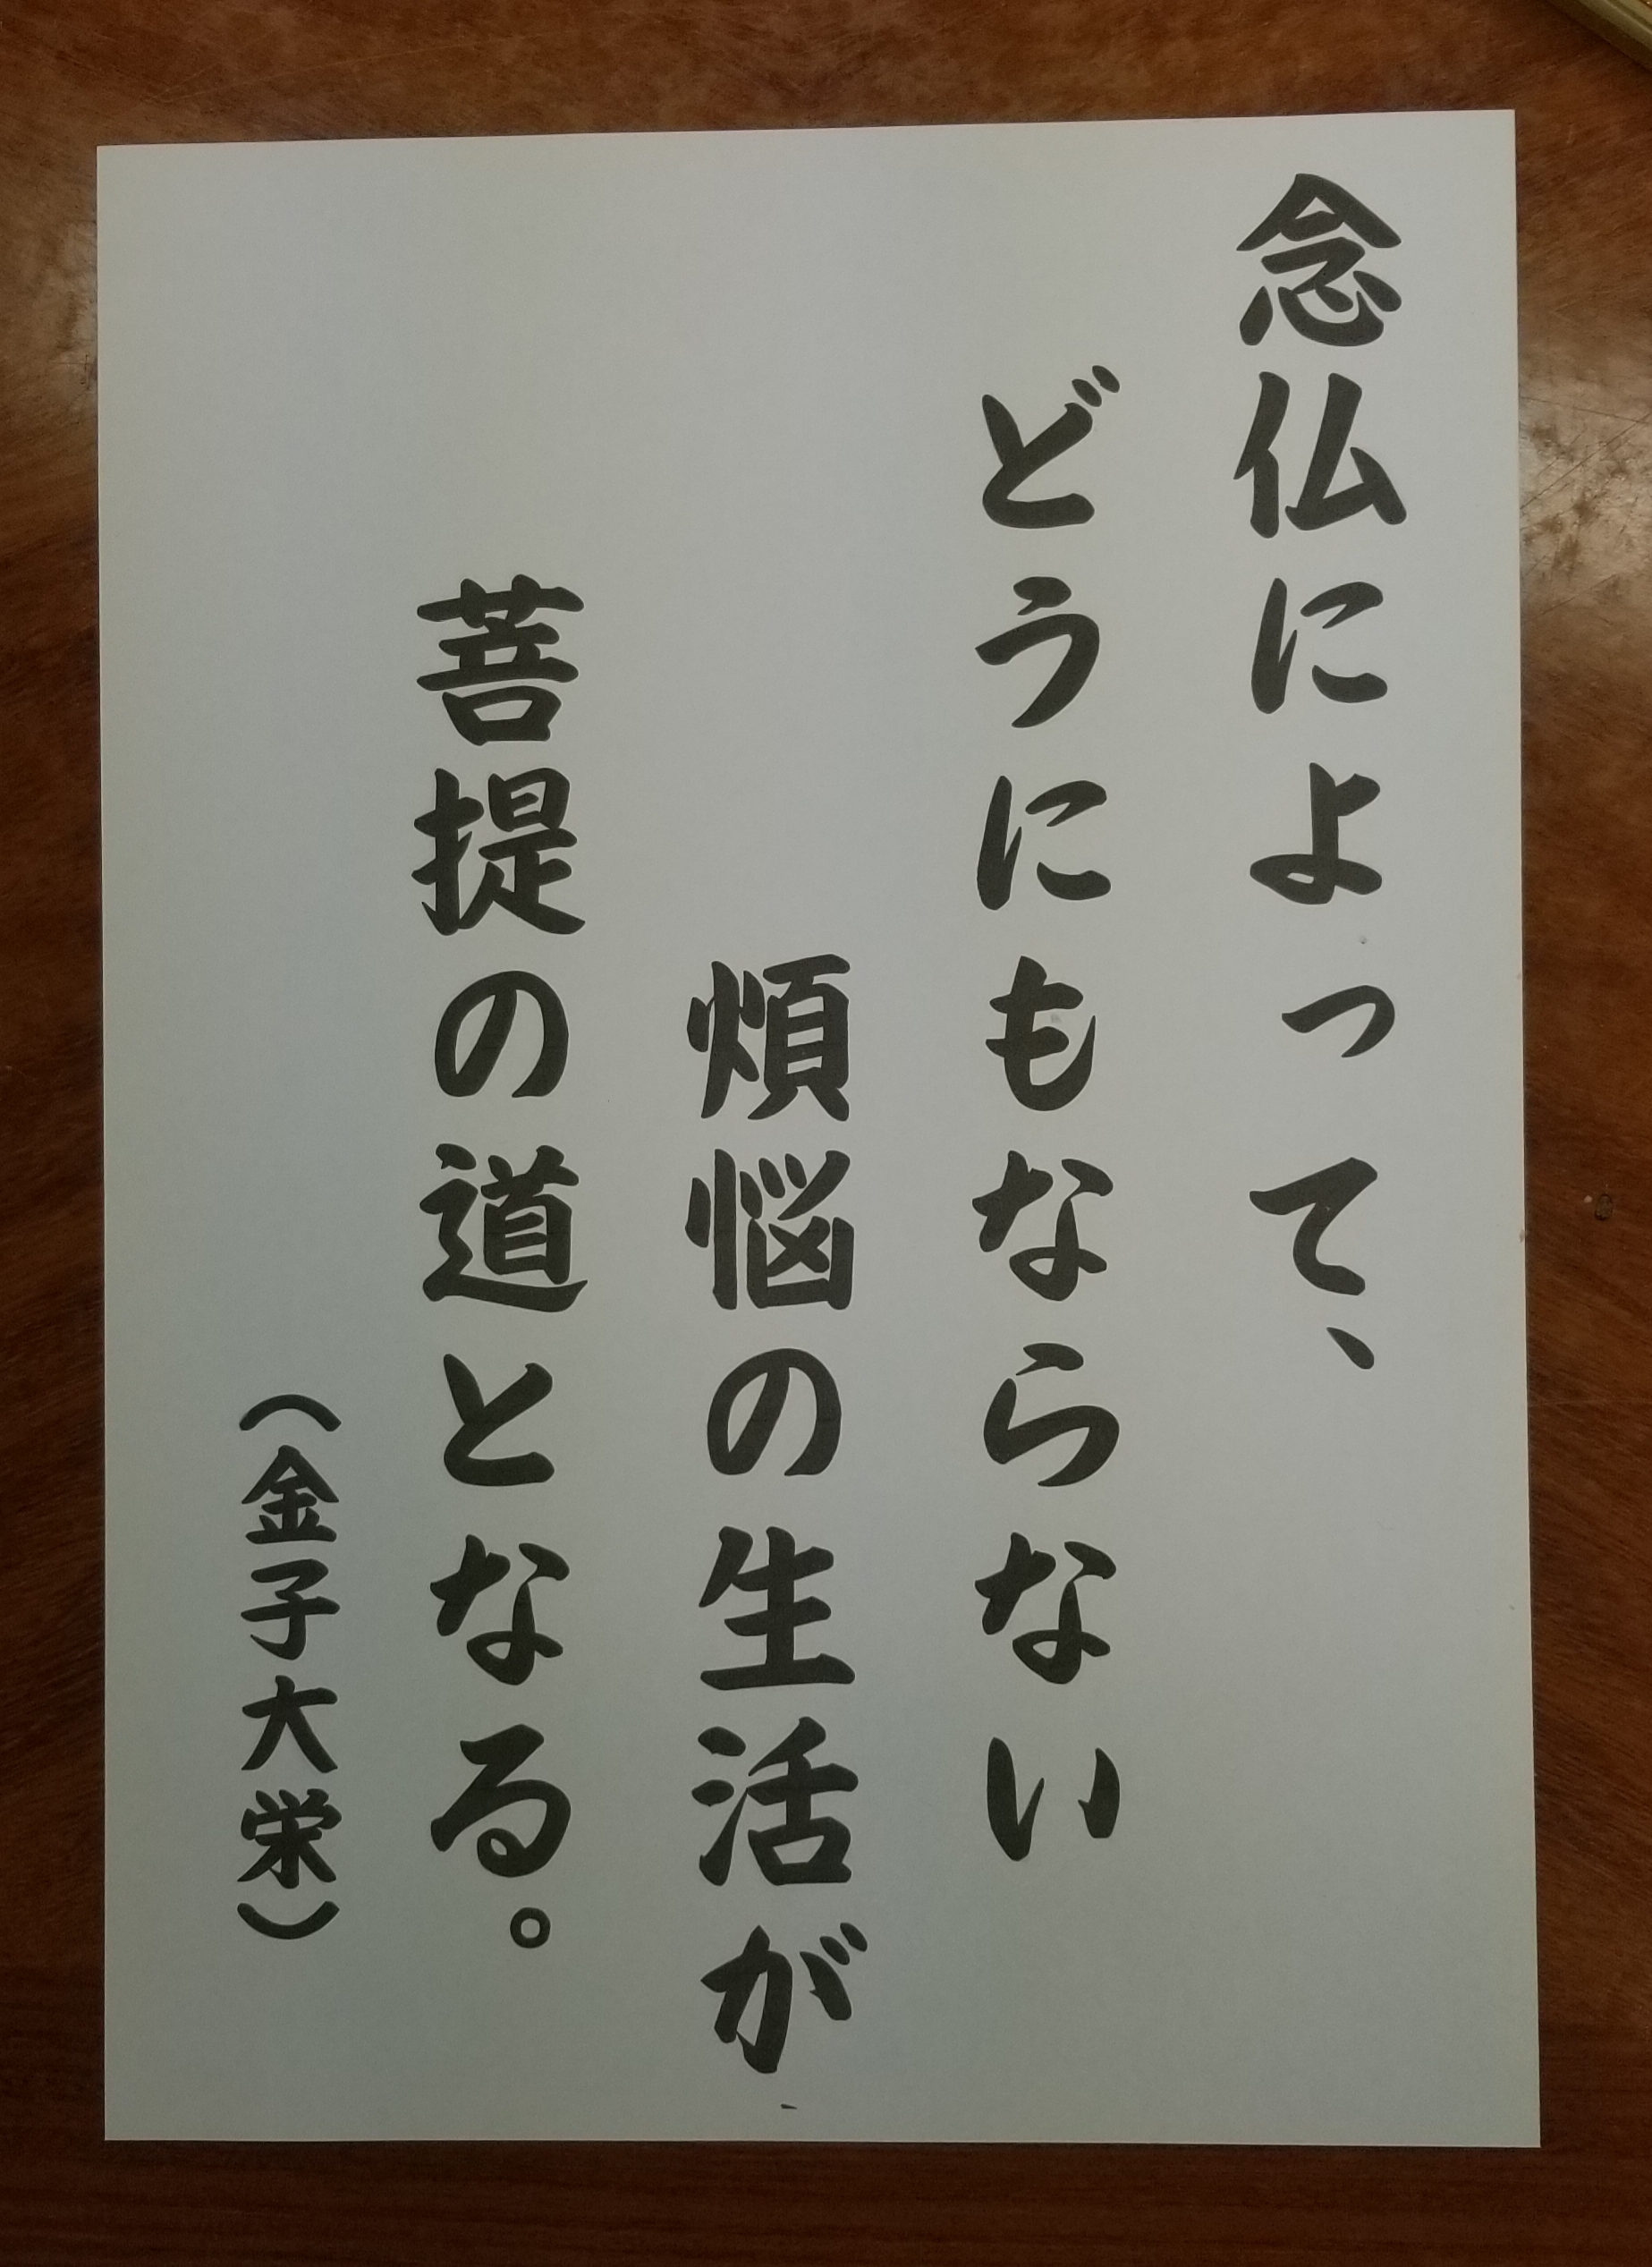 念仏によって、
どうにもならない
煩悩の生活が
菩提の道となる。
（金子大栄）